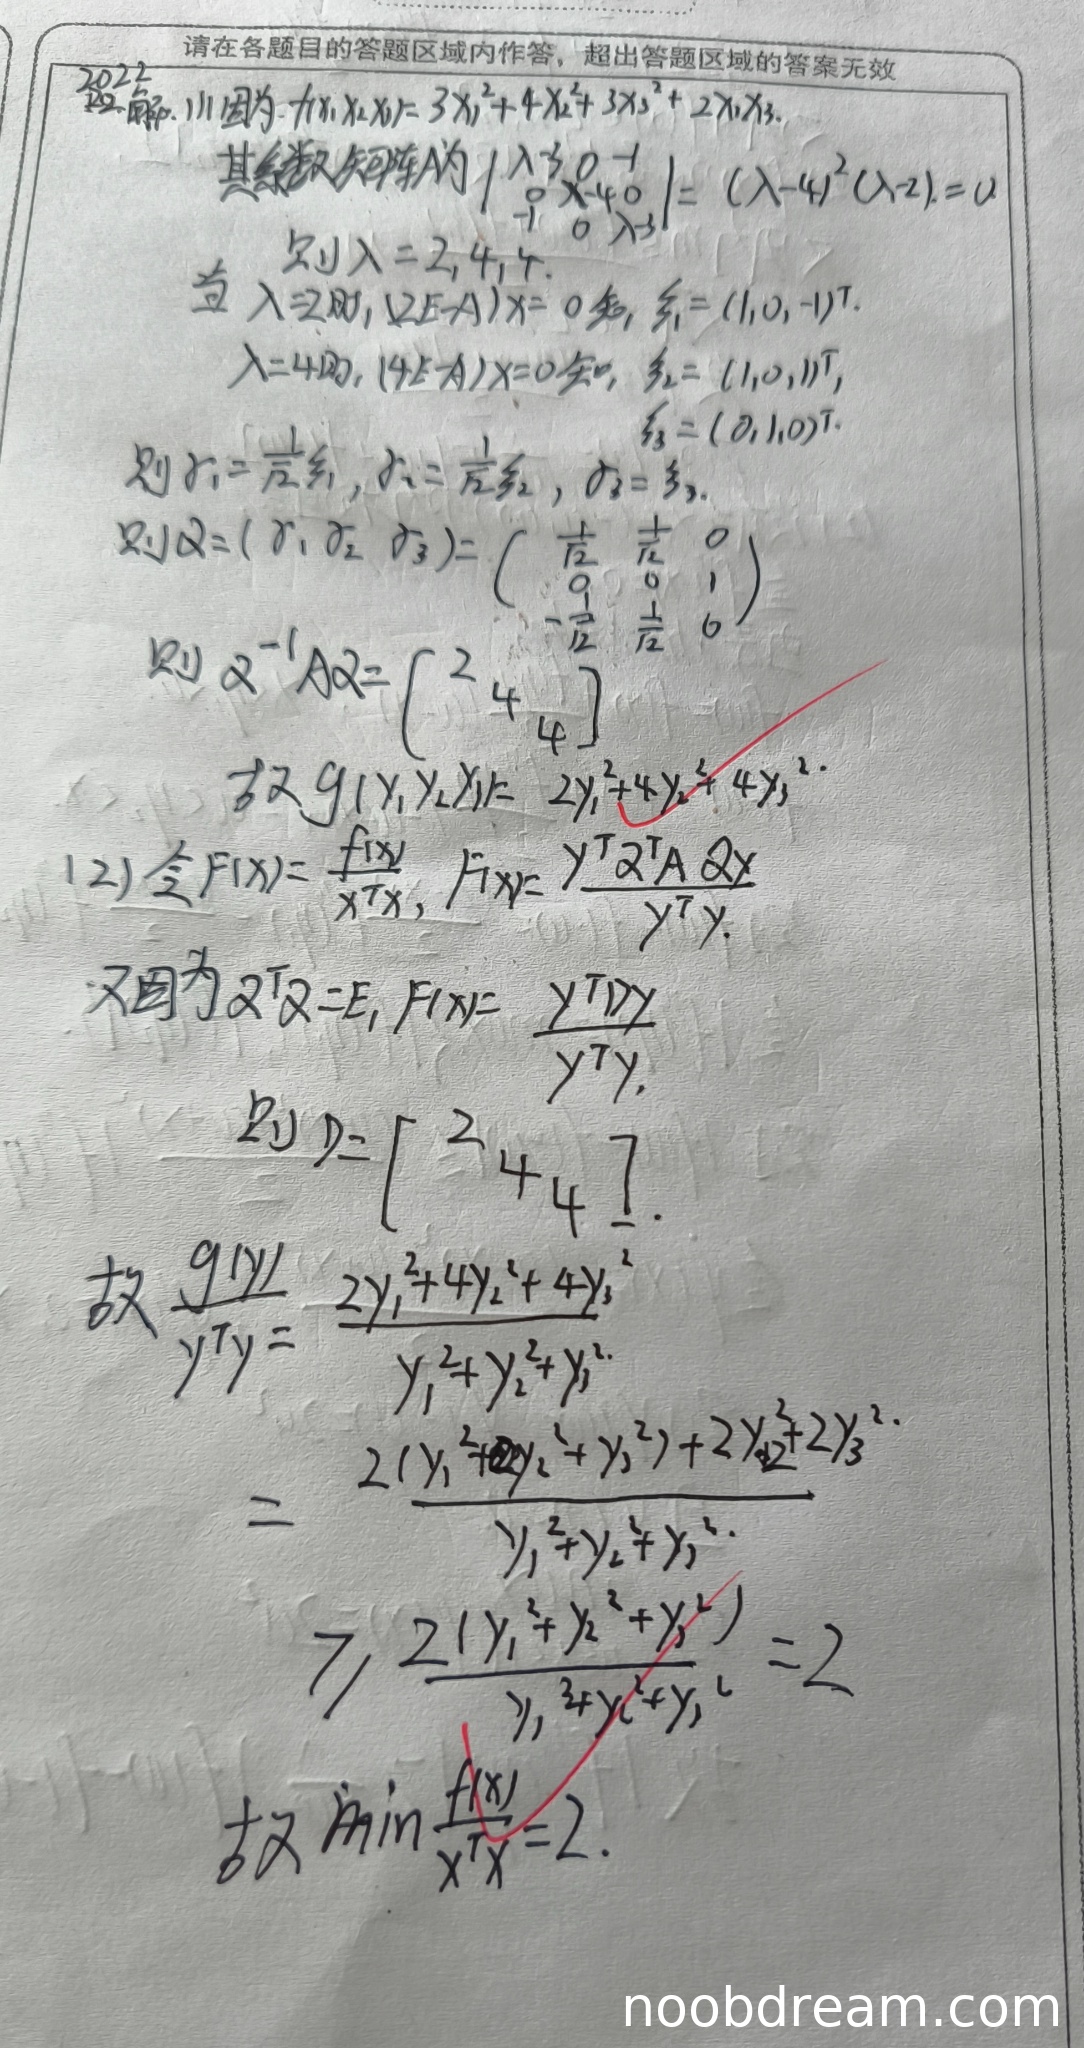 请在各题目的答题区域内作答，超出答题区域的答案无效
2022
22.解. (1)因为 f(x₁ x₂ x₃)= 3x₁²+4x₂²+3x₃²+2x₁x₃.
其系数矩阵A为 |λ-3 0 -1
0 λ-4 0
-1 0 λ-3| = (λ-4)²(λ-2).=0
则λ=2,4,4.
当 λ=2时, (2E-A)x=0知, ξ₁=(1,0,-1)ᵀ.
λ=4时, (4E-A)x=0知, ξ₂=(1,0,1)ᵀ,
ξ₃=(0,1,0)ᵀ.
则γ₁=1/√2 ξ₁, γ₂=1/√2 ξ₂, γ₃=ξ₃.
则Q=(γ₁ γ₂ γ₃)= ( 1/√2 1/√2 0
0 0 1
-1/√2 1/√2 0 )
则 Q⁻¹AQ= [ 2
4
4 ]
故 g(y₁ y₂ y₃)= 2y₁²+4y₂²+4y₃².
(2) 令F(x)= f(x)/xᵀx, F(x)= yᵀQᵀAQy/yᵀy.
又因为QᵀQ=E, F(x)= yᵀDy/yᵀy.
则 D= [ 2
4
4 ].
故 g(y)/yᵀy = 2y₁²+4y₂²+4y₃² / y₁²+y₂²+y₃².
= 2(y₁²+y₂²+y₃²)+2y₂²+2y₃². / y₁²+y₂²+y₃².
≥ 2(y₁²+y₂²+y₃²) / y₁²+y₂²+y₃² =2
故 min f(x)/xᵀx =2.
noobdream.com